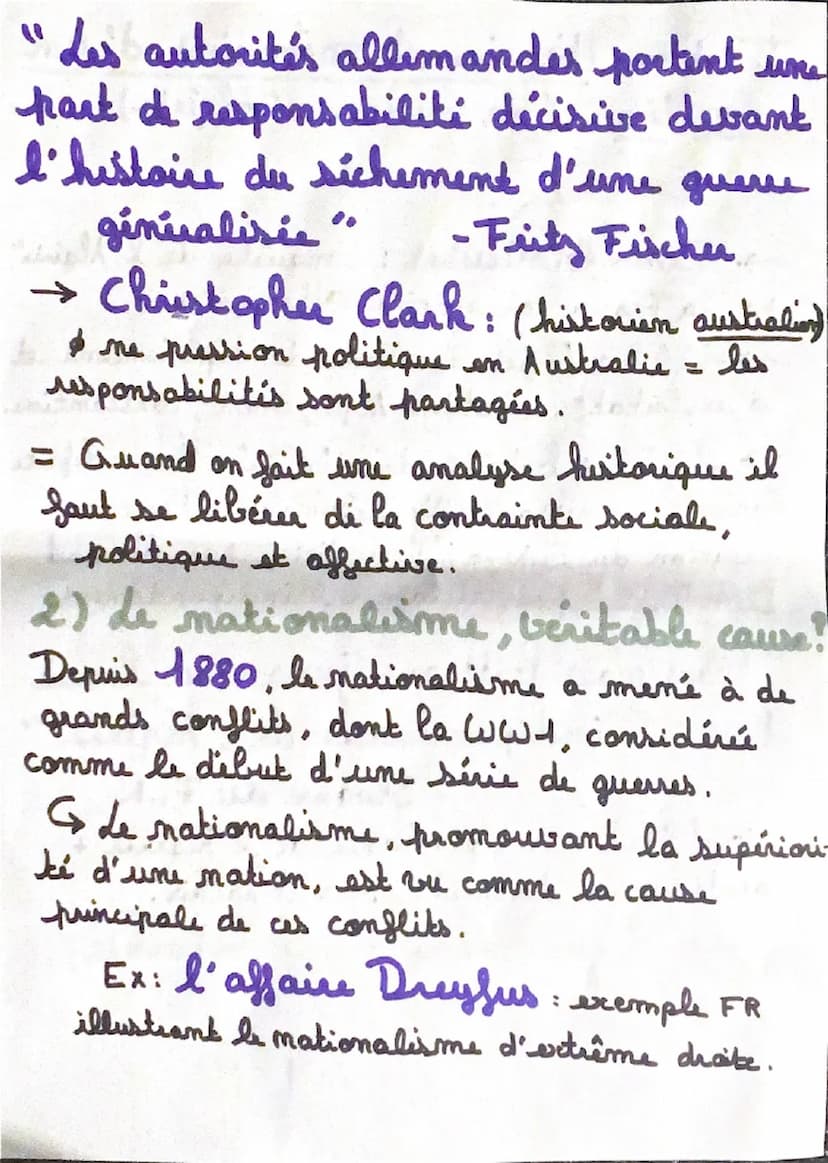 "Les autorités allemandes portent une
part de responsabilité décisive devant
l'histoire du síchement d'une guerre
généralisée" - Fritz Fischer
→ Christopher Clark : (historien australien)
ne pression politique en Australie = les
responsabilités sont partagées.
= Quand on fait une analyse historique il
faut se libérer de la contrainte sociale,
politique et affective.
2) Le nationalisme, véritable cause?
Depuis 1880, le nationalisme a mené à de
grands conflits, dont la WW1, considérée
comme le début d'une série de guerres.
↳ Le nationalisme, promouvant la supériori-
té d'une nation, est vu comme la cause
principale de ces conflits.
Ex: l'affaire Dreyfus : exemple FR
illustrant le nationalisme d'extrême droite.